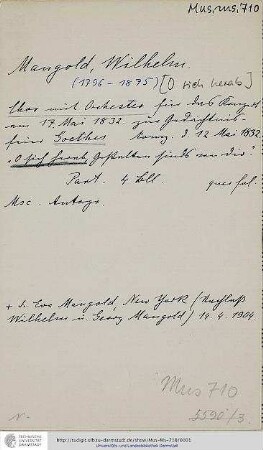 Mus. ms. 710
Mangold, Wilhelm.
(1796 - 1875) [O sieh herab]
Chor mit Orchester für das Konzert
am 17. Mai 1832 zur Gedächtnis-
feier Goethes komp. d. 12 Mai 1832.
"O sieh herab
Part. 4 Bll. quer fol.
Msc. Autogr.
Mangold, New York (Nachlaß
Wilhelm u. Georg Mangold) 14.4.1904
Mus 710
5590/3
http://tudigit.ulb.tu-darmstadt.de/show/Mus-Ms-710/0001
Universitäts- und Landesbibliothek Darmstadt
TECHNISCHE
UNIVERSITÄT
DARMSTADT